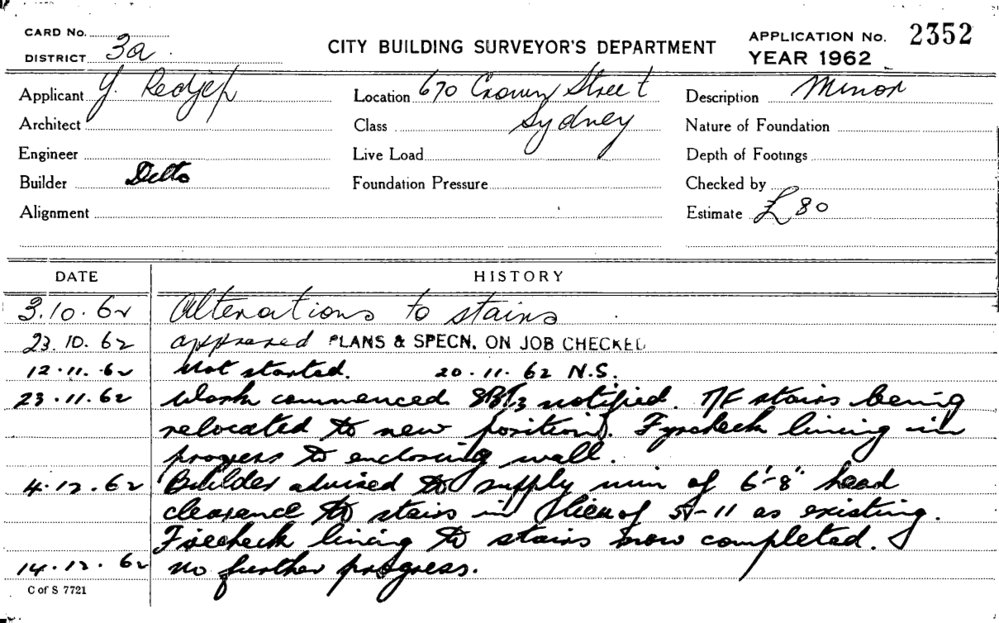 CARD No.
DISTRICT 3a
CITY BUILDING SURVEYOR'S DEPARTMENT
APPLICATION No. 2352
YEAR 1962
Applicant Y. Redjep
Location 670 Crown Street
Description Minor
Architect
Class Sydney
Nature of Foundation
Engineer
Live Load
Depth of Footings
Builder Delto
Foundation Pressure
Checked by
Alignment
Estimate £80
DATE HISTORY
3.10.62 Alterations to stairs
23.10.62 approved PLANS & SPECN. ON JOB CHECKED
12.11.62 Not started. 20.11.62 N.S.
23.11.62 Work commenced notified. T/F stairs being
relocated to new position. Fyrcheck lining in
progress to enclosing wall.
4.12.62 Builder advised to supply min of 6'-8" head
clearance to stairs in lieu of 5-11 as existing.
Firecheck lining to stairs now completed.
14.12.62 no further progress.
C of S 7721